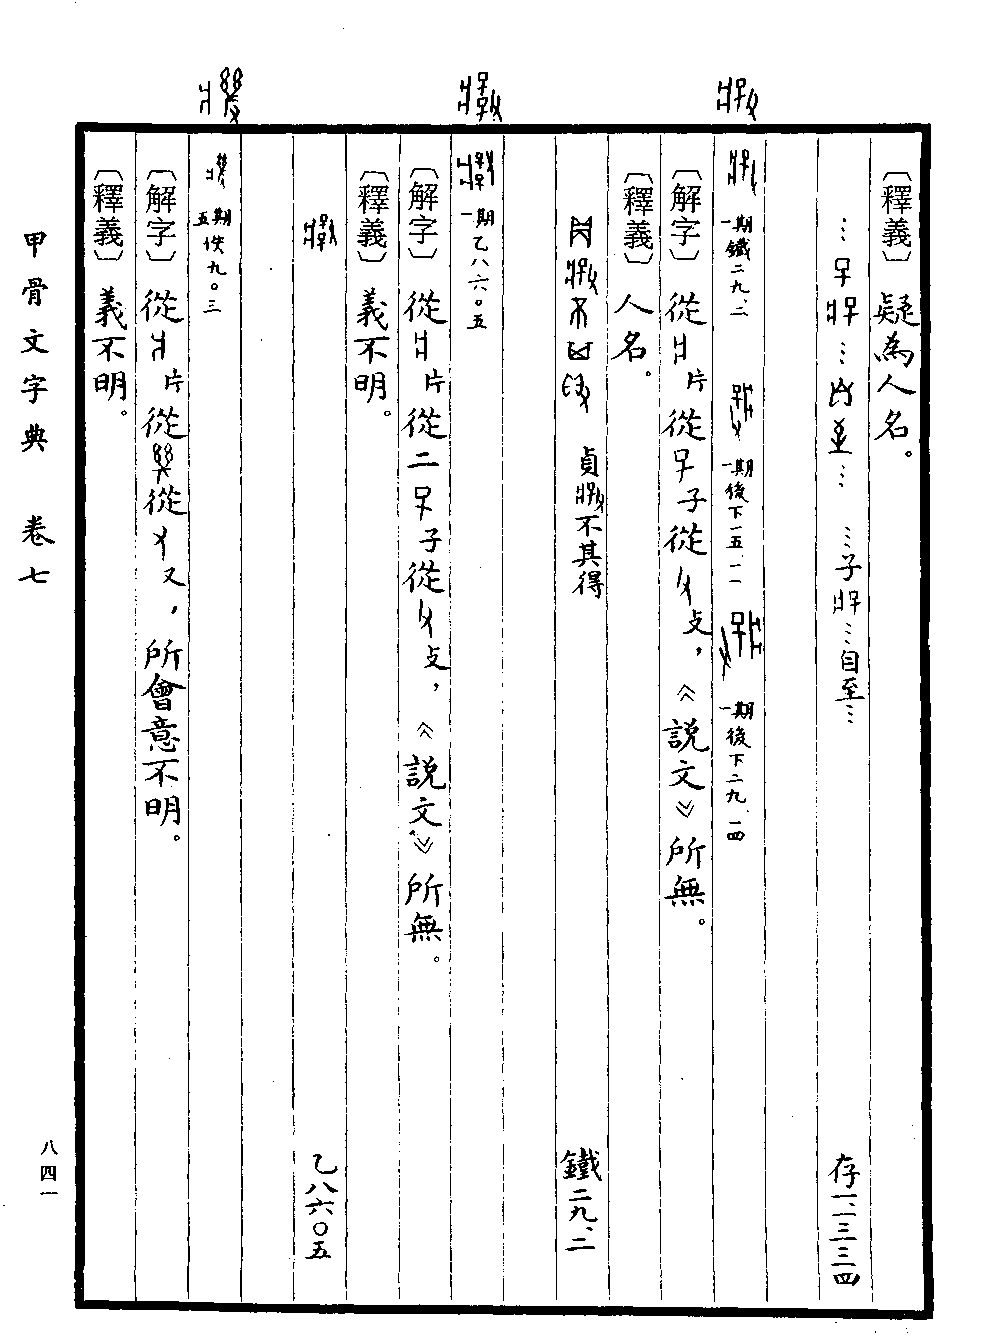 〔釋義〕 疑為人名。
…子…自至…
存一、一三三四
一期鐵二九、二
一期後下一五、一一
一期後下二九、一四
〔解字〕 從片從子從攴，《說文》所無。
〔釋義〕 人名。
貞不其得
鐵二九、二
一期乙八六〇五
〔解字〕 從片從二子從攴，《說文》所無。
〔釋義〕 義不明。
乙八六〇五
五期佚九〇三
〔解字〕 從片從從又，所會意不明。
〔釋義〕 義不明。
甲骨文字典 卷七
八四一